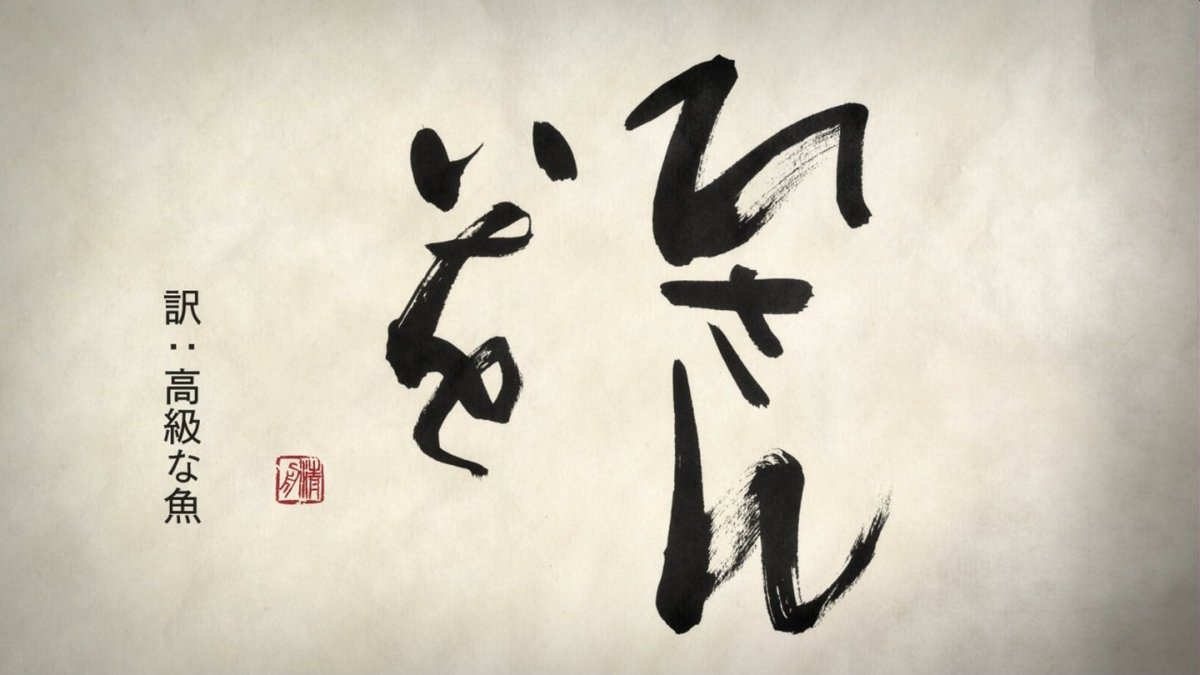 ひさん
いを
清舟
訳：高級な魚